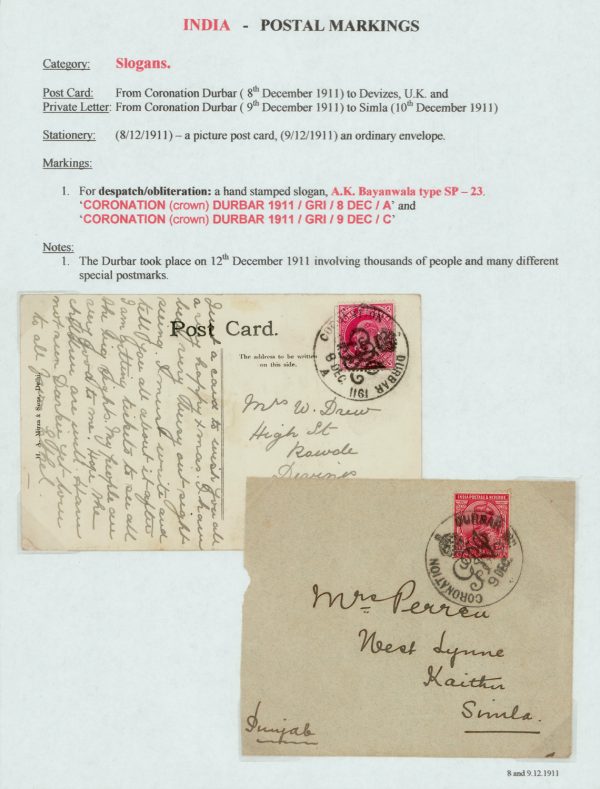 INDIA - POSTAL MARKINGS
Category: Slogans.
Post Card: From Coronation Durbar ( 8th December 1911) to Devizes, U.K. and
Private Letter: From Coronation Durbar ( 9th December 1911) to Simla (10th December 1911)
Stationery: (8/12/1911) – a picture post card, (9/12/1911) an ordinary envelope.
Markings:
1. For despatch/obliteration: a hand stamped slogan, A.K. Bayanwala type SP – 23.
‘CORONATION (crown) DURBAR 1911 / GRI / 8 DEC / A’ and
‘CORONATION (crown) DURBAR 1911 / GRI / 9 DEC / C’
Notes:
1. The Durbar took place on 12th December 1911 involving thousands of people and many different
special postmarks.
Post Card.
The address to be written
on this side.
DURBAR 1911
8 DEC
A
Mrs W. Drew
High St
Rowde
Devizes
Just a card to wish you all
a very happy Xmas. I have
been very busy out sight
seeing. I must write and
tell you all about it after
I am getting tickets to see all
the big sights. My people are
very good to me. Hope the
children are well. Have
not seen Darkie yet love
to all
Ethel
INDIA POSTAGE & REVENUE
DURBAR
CORONATION
9 DEC
Mrs Perreu
West Lynne
Kaithu
Simla.
Punjab
8 and 9.12.1911